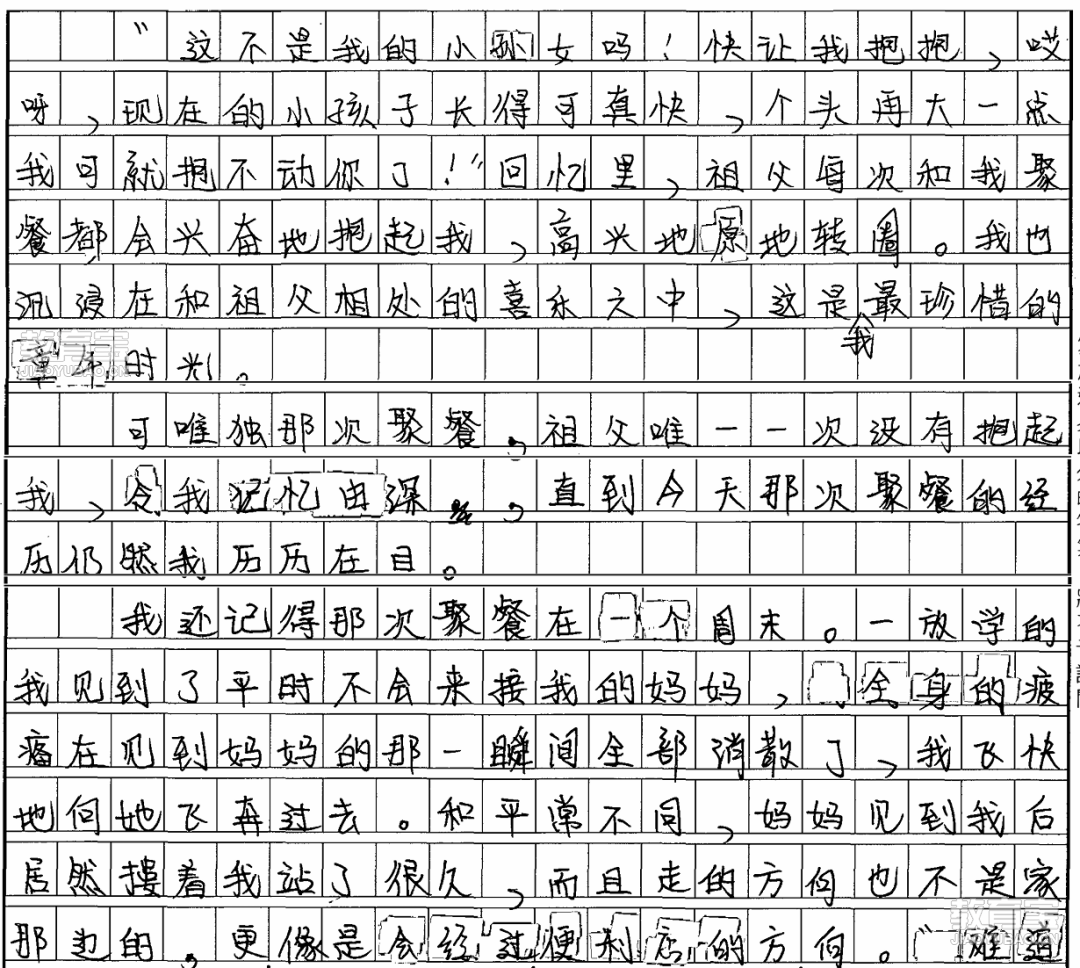 “这不是我的小孙女吗！快让我抱抱，哎
呀，现在的小孩子长得可真快，个头再大一点
我可就抱不动你了！”回忆里，祖父每次和我聚
餐都会兴奋地抱起我，高兴地原地转圈。我也
沉浸在和祖父相处的喜乐之中，这是我最珍惜的
童年时光。
可唯独那次聚餐，祖父唯一一次没有抱起
我，令我记忆由深，直到今天那次聚餐的经
历仍然我历历在目。
我还记得那次聚餐在一个周末。一放学的
我见到了平时不会来接我的妈妈，全身的疲
痛在见到妈妈的那一瞬间全部消散了，我飞快
地向她飞奔过去。和平常不同，妈妈见到我后
居然搂着我站了很久，而且走的方向也不是家
那边的，更像是会经过便利店的方向。“难道